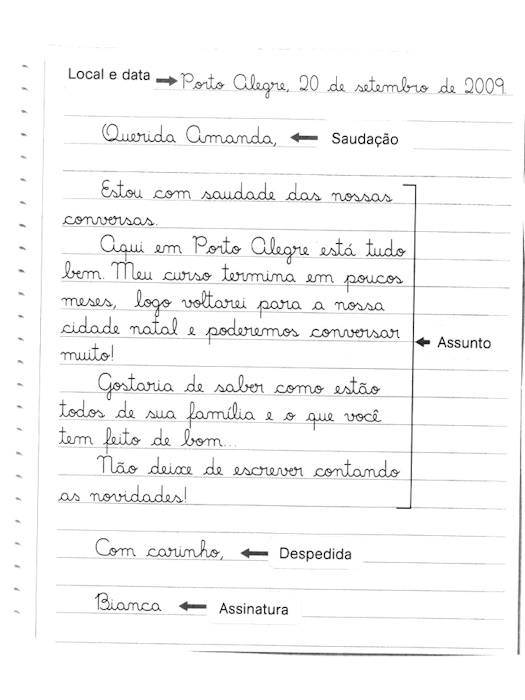 Local e data Porto Alegre, 20 de setembro de 2009.
Querida Amanda, Saudação
Estou com saudade das nossas
conversas.
Aqui em Porto Alegre está tudo
bem. Meu curso termina em poucos
meses, logo voltarei para a nossa
cidade natal e poderemos conversar
muito!
Assunto
Gostaria de saber como estão
todos de sua família e o que você
tem feito de bom...
Não deixe de escrever contando
as novidades!
Com carinho, Despedida
Bianca Assinatura